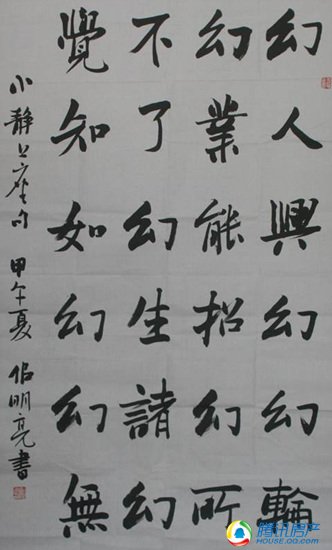 幻人興幻幻輪
幻業能招幻所
不了幻生諸幻
覺知如幻幻無
小静上座句 甲午夏 明亮書
腾讯房产
HOUSE.QQ.COM